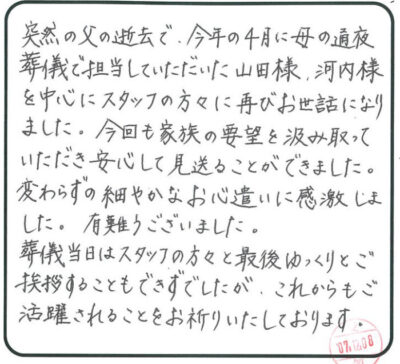 突然の父の逝去で、今年の4月に母の通夜
葬儀で担当していただいた山田様、河内様
を中心にスタッフの方々に再びお世話になり
ました。今回も家族の要望を汲み取って
いただき安心して見送ることができました。
変わらずの細やかなお心遣いに感激しま
した。有難うございました。
葬儀当日はスタッフの方々と最後ゆっくりとご
挨拶することもできずでしたが、これからもご
活躍されることをお祈りいたしております。